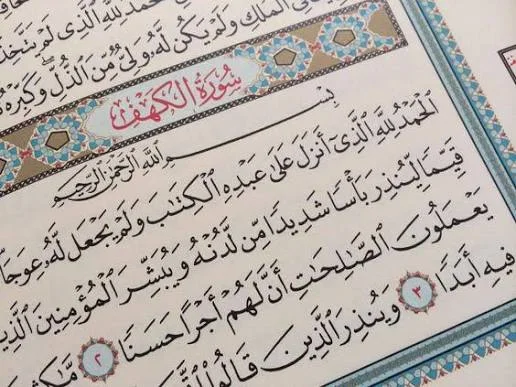 ٱلْحَمْدُ لِلَّهِ ٱلَّذِى لَمْ يَتَّخِذْ
ٱلْمُلْكِ وَلَمْ يَكُن لَّهُۥ وَلِىٌّ مِّنَ ٱلذُّلِّ وَكَبِّرْهُ
سُورَةُ الكَهْفِ
بِسْمِ ٱللَّهِ ٱلرَّحْمَٰنِ ٱلرَّحِيمِ
ٱلْحَمْدُ لِلَّهِ ٱلَّذِىٓ أَنزَلَ عَلَىٰ عَبْدِهِ ٱلْكِتَٰبَ وَلَمْ يَجْعَل لَّهُۥ عِوَجَا
قَيِّمًا لِّيُنذِرَ بَأْسًا شَدِيدًا مِّن لَّدُنْهُ وَيُبَشِّرَ ٱلْمُؤْمِنِينَ ٱلَّذِينَ
يَعْمَلُونَ ٱلصَّٰلِحَٰتِ أَنَّ لَهُمْ أَجْرًا حَسَنًا ٢
فِيهِ أَبَدًا ٣ وَيُنذِرَ ٱلَّذِينَ قَالُوا۟